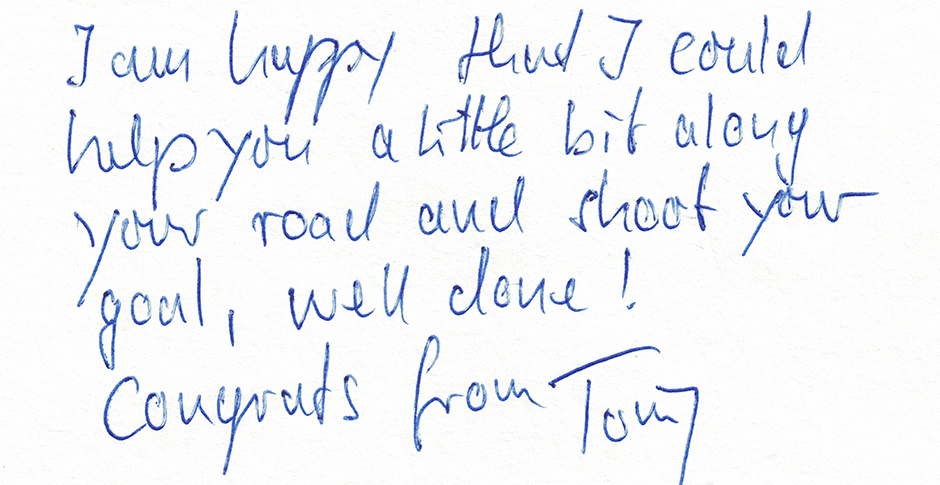 I am happy that I could
help you a little bit along
your road and shoot your
goal, well done!
Congrats from Tomy